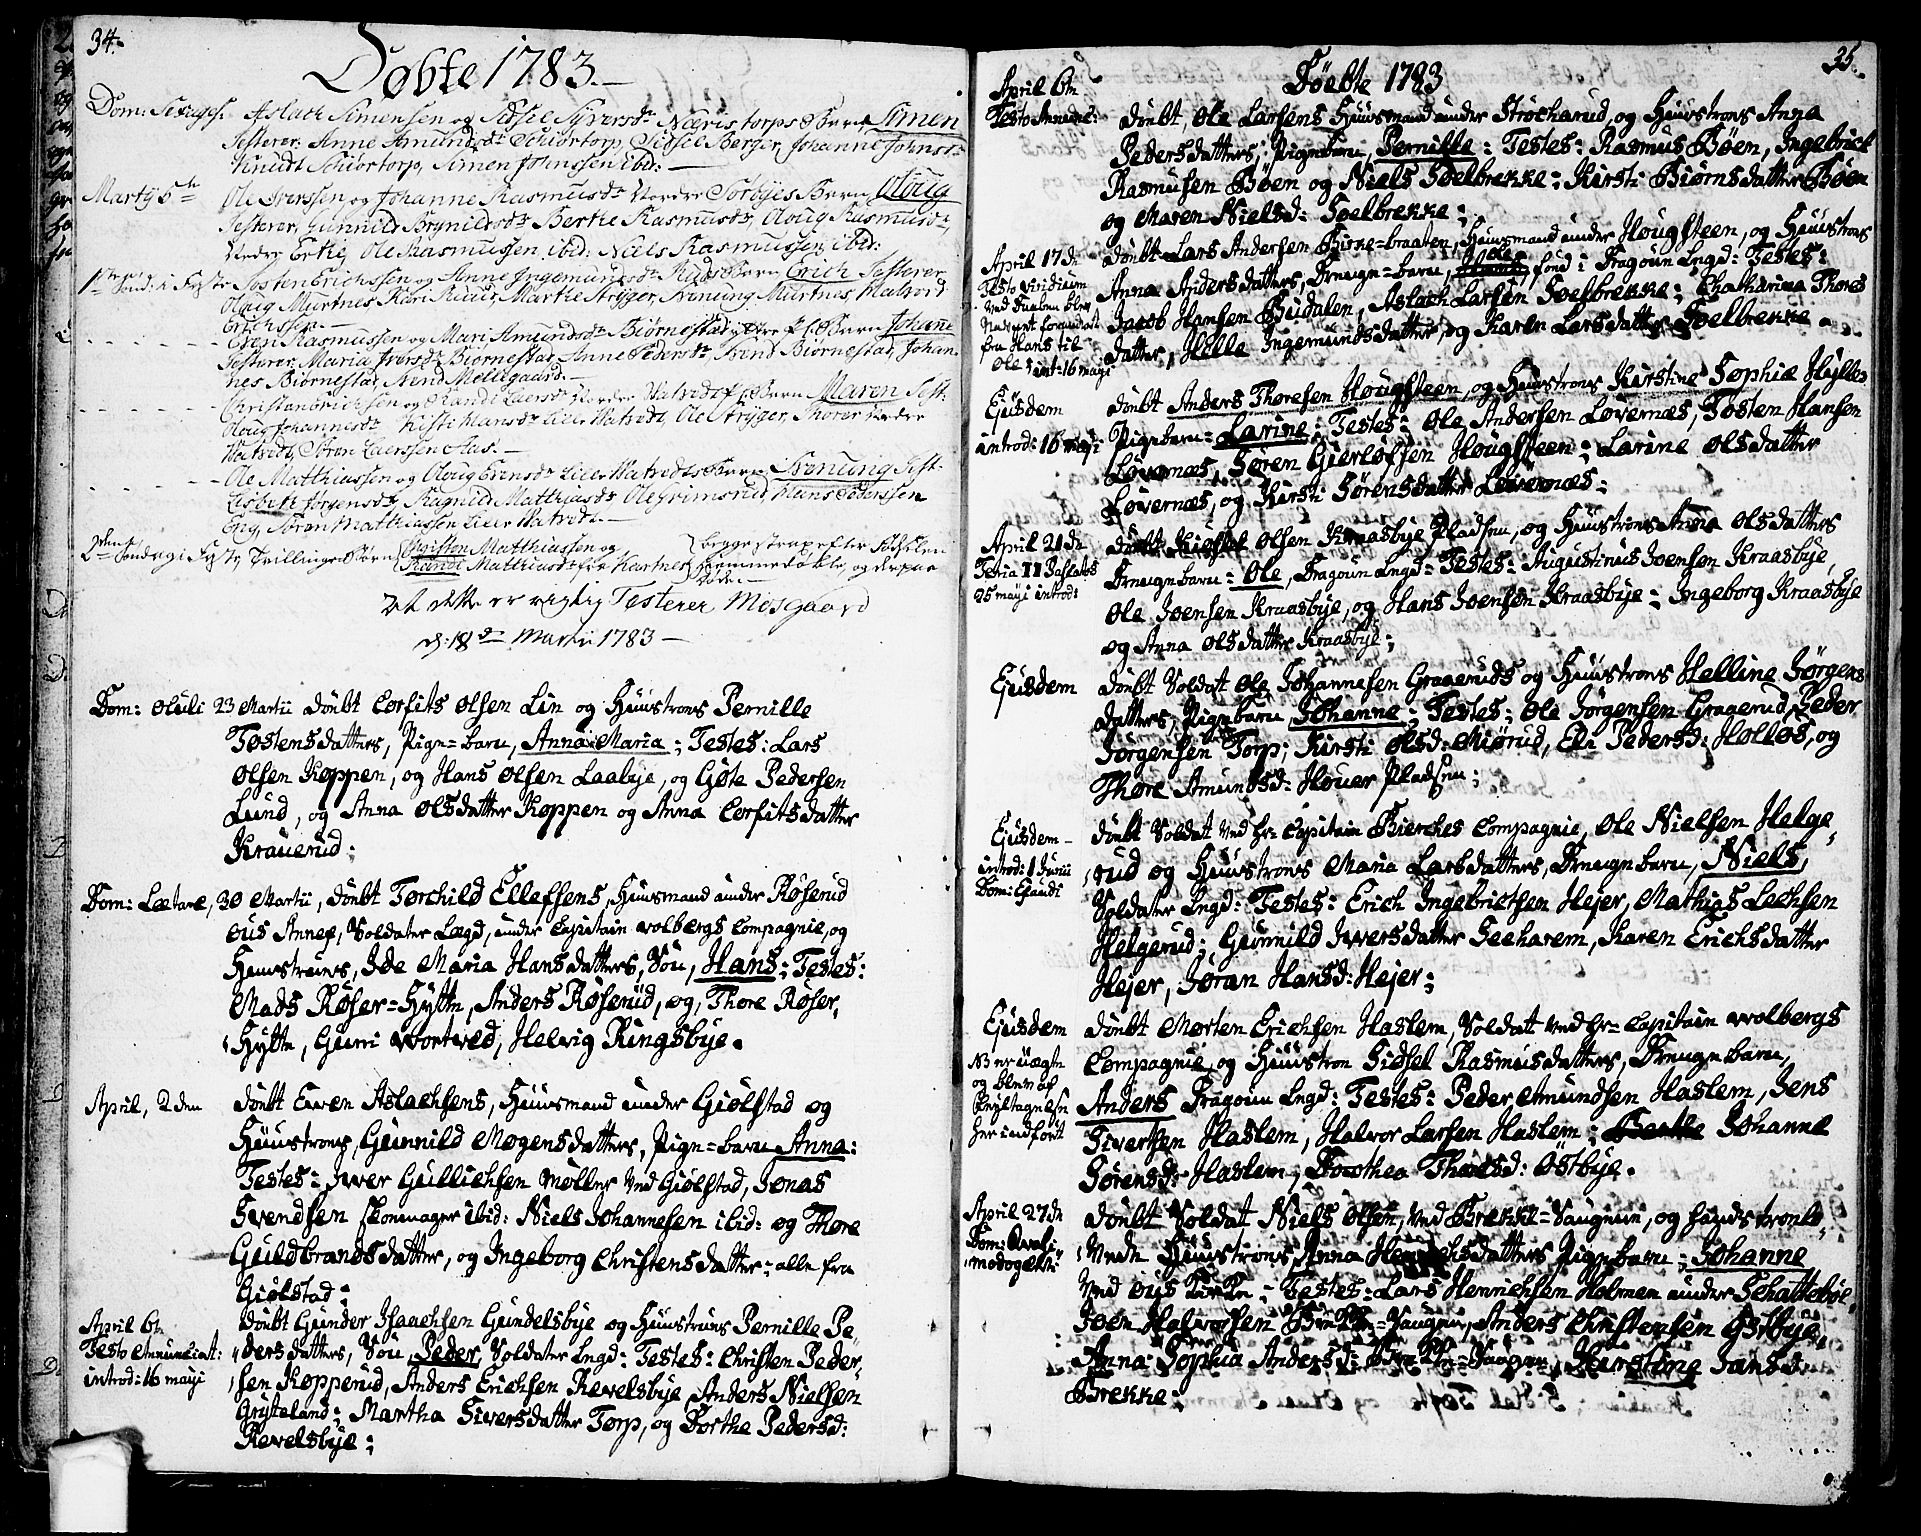 34.
Døbte 1783.
Dom: Sexages. Aslach Simensen og Sidsel Syversdr Næristorps Barn Simen
Testerer. Anne Amundsdr Schiörtorp, Sidsel Berger, Johanne Johnsdr
Knudt Schiörtorp, Simen Johnssen ibid: —
Martij 6te Ole Iverssen og Johanne Rasmusdr Nordre Sorbyes Barn Oloug
Testerer, Gunnild Brynildsdr Berthe Rasmusdr, Oloug Rasmusdr,
Nordre Ertie, Ole Rasmussen ibid: Niels Rasmussen, ibid:
1ste Sønd: i Faste Tosten Erichssen og Anne Ingemundsdr Ruds Barn Erich Testerer
Oloug Murtnes, Kari Ruud, Marthe Stryger, Svenung Murtnes, Halvord
Erichssen. —
- - - - Even Rasmussen og Mari Amundsdr Biørnestad Barn Johanne
Testerer. Maria Iversdr Biørnestad, Anne Pedersdr, Trend Biørnestad, Johan-
nes Biørnestad, Svend Mellegaard. —
- - - - Christian Erichssen og Randi Larsdr Nordre Hatvedt Barn Maren Test:
Oloug Johannesdr Kisti Hansdr Lille Hatvedt, Ole Stryger, Thorer Nordre
Hatvedt, Søren Larssen Aas. —
- - - - Ole Matthiassen og Oloug Evensdr Lille Hatvedts Barn Svenung Test:
Lisbeth Jørgensdr, Ragnild Matthiasdr Ole Grimsrud, Hans Pederssen
Eng, Søren Matthiassen Lille Hatvedt. —
2den Søndag i Faste, Tvillinger Børn Christen Matthiassen og
Randi Matthiasdr fra Kartnes begge strax efter Fødselen
hiemmedøbte, og derpaa
døde. —
At dette er rigtig Testerer Mosgaard
d: 18de Martii 1783 —
Dom: Oculi 23 Martii døubt Corfits Olsen Lin og Huustroes Pernille
Tostensdatters, Pige=barn, Anna Maria; Testes: Lars
Olsen Køppen, og Hans Olsen Laabye, og Gøte Pedersen
Lund, og Anna Olsdatter Køppen og Anna Corfitsdatter
Krauerud:
Dom: Lætare, 30 Martii, døubt Torchild Ellefsens, Huusmand under Røserud
ous Annex, Soldater Lægd, under Capitain Wolbergs Compagnie, og
Huustrues, Ide Maria Hansdatters, Søn, Hans; Testes:
Mads Røser=Hytte, Anders Røserud, og, Thore Røser,
Hytte, Guri Wortved, Helvig Ringsbye.
April, 2 den døubt Ewen Aslachsens, Huusmand under Giølstad og
Huustroes, Gunnild Mogensdatters, Pige=barn Anna:
Testes: Iwer Gullichsen Møller ved Giølstad, Jonas
Svendsen Skomager ibid: Niels Johannesen ibid: og Thore
Guldbrandsdatter, og Ingeborg Christensdatter; alle fra
Giølstad:
April 6te
Festo Annunciat:
introd: 16 maji
døubt Gunder Isaachsen Gundelsbye og Huustrues Pernille Pe-
dersdatters, Søn, Peder, Soldater Lægd: Testes: Christen Peder,
sen Køpperud, Anders Erichsen Rewelsbye Anders Nielsen
Gryteland; Martha Siversdatter Torp, og Dorthe Pedersd:
Rewelsbye:
35.
Døbte 1783
April 6te
Festo Annunc:
døubt, Ole Larsens Huusmand under Strøcharud, og Huustroes Anna
Pedersdatters, Pigebarn, Pernille: Testes: Rasmus Bøen, Ingebrict
Rasmusen Bøen og Niels Soelbrekke: Kirsti Biørnsdatter Bøen
og Maren Nielsd: Soelbrekke:
April 17de
Festo Viridium
introd: 16 maji
fra Hans til
Ole
døubt Lars Andersen Birke=braaten, Huusmand under Hougsteen, og Huustroes
Anna Andersdatters, Drenge=barn, Hans Ole fød i Dragoun Lægd: Testes:
Jacob Hansen Buidalen, Aslach Larsen Soelbrekke; Chatharina Thores
datter, Helle Ingemundsdatter, og Karen Larsdatter Soelbrekke.
Ejusdem
introd: 16 maji
døubt Anders Thoresen Hougsteen, og Huustroes Kirstine Sophie Hylles
Pigebarn= Larine: Testes: Ole Andersen Løvernæs, Tosten Hansen
Løvernæs, Søren Gierløfsen Hougsteen; Larine Olsdatter
Løvernæs, og Kirsti Sørensdatter Løvernæs:
April 21de
Feria II Paschatos
25 maji introd:
døubt Christen Olsen Kraasbye Pladsen, og Huustroes Anna Olsdatters
Drengebarn= Ole, Dragoun Lægd: Testes: Augustinus Joensen Kraasbye,
Ole Joensen Kraasbye, og Hans Joensen Kraasbye; Ingeborg Kraasbye
og Anna Olsdatter Kraasbye;
Ejusdem døubt Soldatt Ole Johannesen Graaeruds og Huustroes Helline Jørgens
datters, Pigebarn, Johanne; Testes: Ole Jørgensen Graaerud, Peder
Jørgensen Torp; Kirsti Olsd: Miørud, Eli Pedersd: Holløs, og
Thore Amundsd: Houer Pladsen:
Ejusdem
introd: 1 Junii
Dom: Exaudi
døubt Soldatt ved Hr= Capitain Bierches Compagnie, Ole Nielsen Helge,
rud og Huustroes Maria Larsdatters, Drengebarn, Niels,
Soldater Lægd: Testes: Erich Ingebrictsen Hejer, Mathias Lechsen
Helgerud; Gunnild Iwersdatter Seeharem, Karen Erichsdatter
Hejer, Søran Hansd: Hejer;
Ejusdem
NB er uægte
og blev af
her indført
døubt Morten Erichsen Haslem, Soldatt ved Hr= Capitain Wolbergs
Compagnie, og Huustroes Sidsel Rasmusdatters, Drengebarn,
Anders Dragoun Lægd: Testes: Peder Amundsen Haslem, Jens
Sivertsen Haslem, Halvor Larsen Haslem; Berthe Johanne
Sørensd: Haslem; Dorothea Thoresd: Ostbye.
April 27de
Dom: Quasi
modogeniti
døubt Soldat Niels Olsen, ved Brekke=Saugene, og
Huustroes Anna Henrichsdatters Pigebarn; Johanne
ved ous Kirke: Testes: Lars Henrichsen Holmen under Schattebøl,
Joen Halvorsen Brekke=Saugene, Anders Christensen Ostbye,
Anna Sophia Andersd: Brekke=Saugene, Kerstine Jansd:
Brekke: